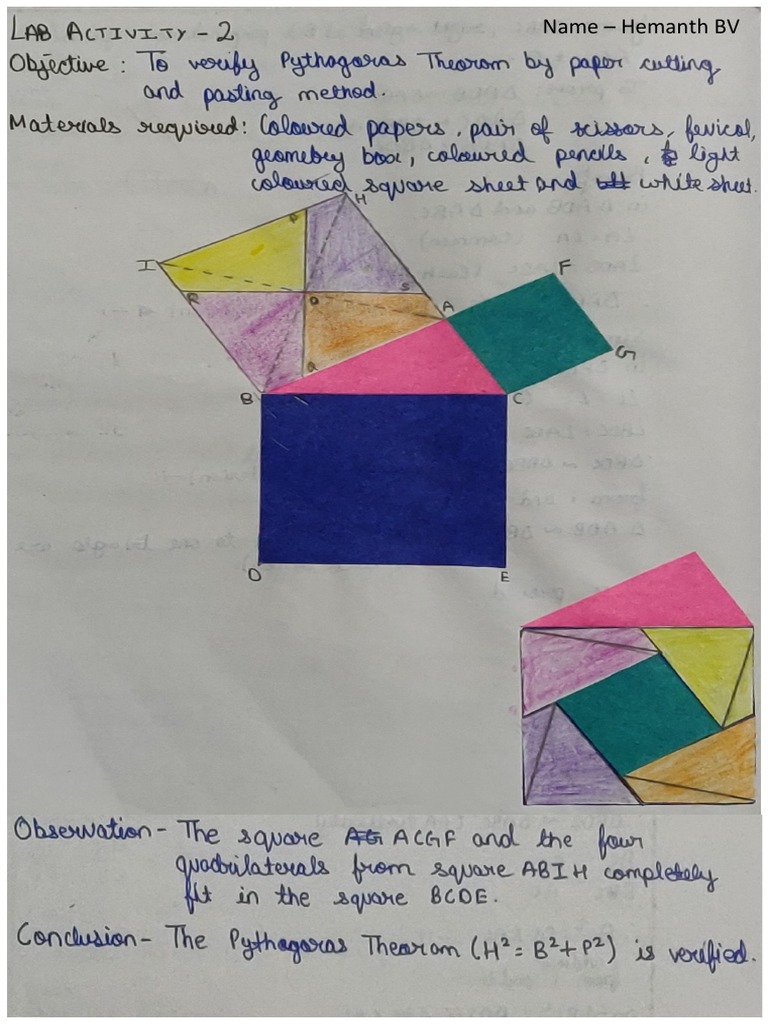 LAB ACTIVITY - 2
Name – Hemanth BV
Objective : To verify Pythagoras Theorem by paper cutting
and pasting method.
Materials required: Coloured papers, pair of scissors, fevicol,
geometry box, coloured pencils, light
coloured square sheet and white sheet.
H
P
I
F
R
O
S
A
Q
G
B
C
D
E
Observation - The square ACGF and the four
quadrilaterals from square ABIH completely
fit in the square BCDE.
Conclusion - The Pythagoras Thearam (H² = B² + P²) is verified.